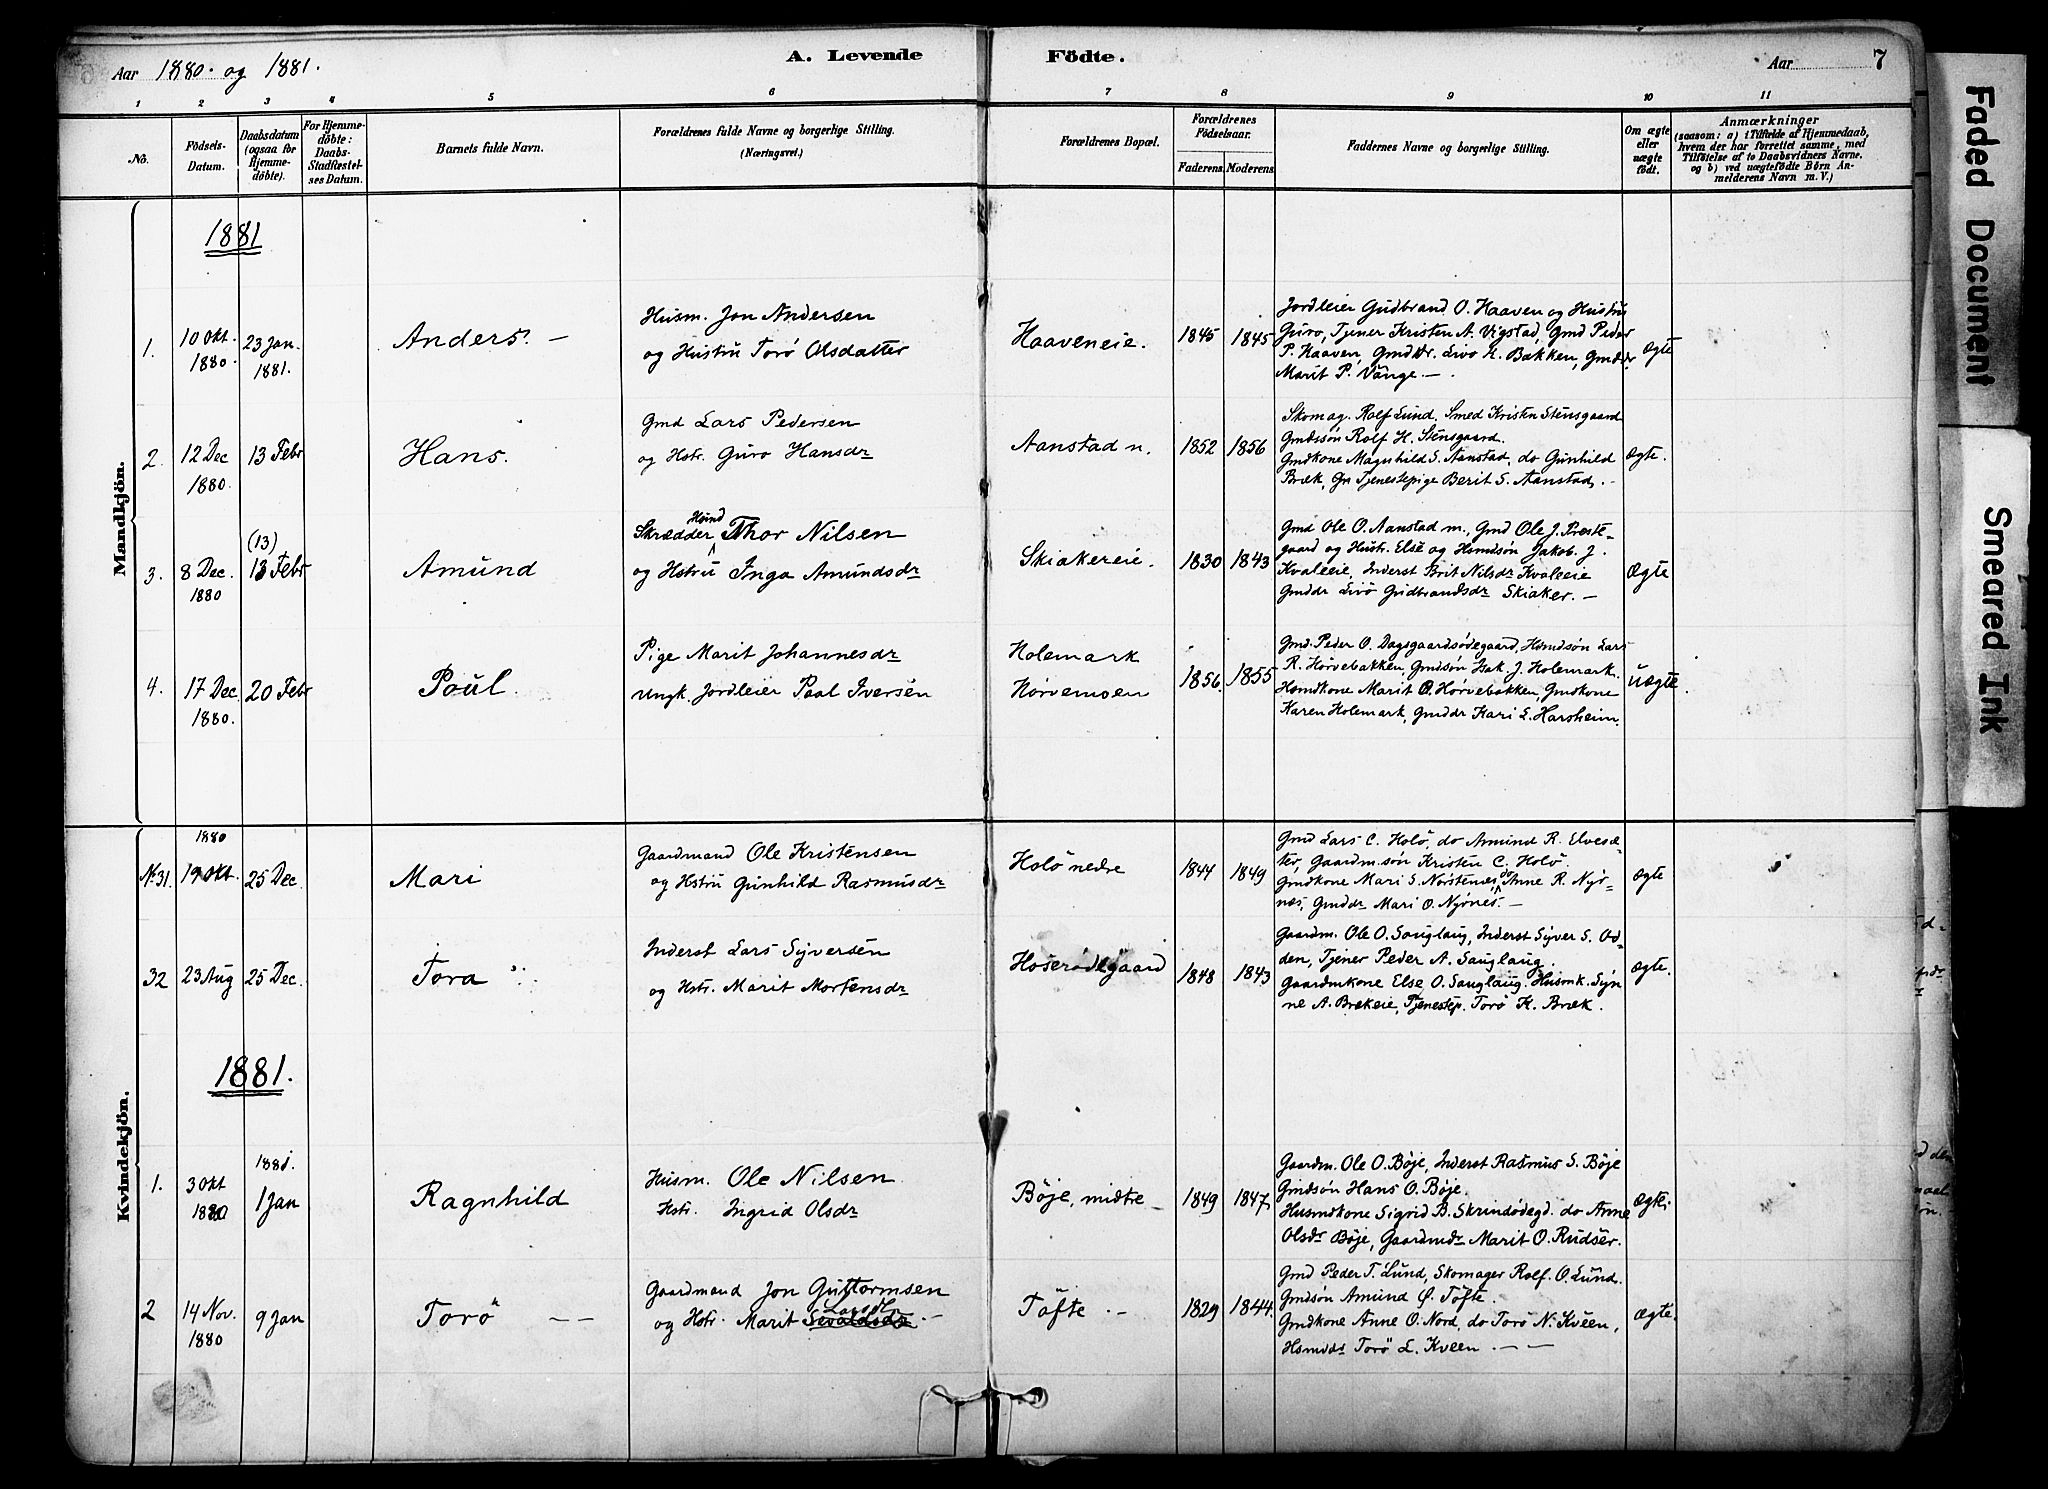 Aar 1880. og 1881.
A. Levende
Födte.
Aar
7
1 2 3 4 5 6 7 8 9 10 11
No.
Födsels-
Datum.
Daabsdatum
(ogsaa for
Hjemme-
döbte).
For Hjemme-
döbte:
Daabs-
Stadfæstel-
ses Datum.
Barnets fulde Navn.
Forældrenes fulde Navne og borgerlige Stilling.
(Næringsvei.)
Forældrenes Bopæl.
Forældrenes
Födselsaar.
Faderens. Moderens.
Faddernes Navne og borgerlige Stilling.
Om ægte
eller
uægte
födt.
Anmærkninger
(saasom: a) i Tilfælde af Hjemmedaab,
hvem der har forrettet samme, med
Tilföielse af to Daabsvidners Navne.
og b) ved uægtefödte Börn An-
melderens Navn m. V.)
Mandkjön.
1881
1.
10 Okt.
1880.
23 Jan.
1881.
Anders. —
Husm. Jon Andersen
og Hustru Torö Olsdatter
Haaveneie.
1845
1845
Jordleier Gudbrand O. Haaven og Hustru
Guro, Tjener Kristen A. Vigstad, Gmd Peder
P. Haaven, Gmddr. Livö H. Bakken, Gmddr.
Marit P. Vange. —.
ægte
2.
12 Dec
1880.
13 Febr
Hans.
Gmd Lars Pedersen
og Hstr. Guro Hansdr
Aanstad n.
1852
1856
Skomag. Rolf Lund. Smed Kristen Stensgaard
Gmdssön Rolf H. Stensgaard.
Gmdkone Magnhild S. Aanstad, do Gunhild
Bræk, Gn Tjenestepige Berit S. Aanstad. —
Ægte.
3.
8 Dec.
1880
(13)
13 Febr
Amund
Skrædder Thor Nilsen
og Hstru Inga Amundsdr
Skiakereie.
1830
1843
Gmd Ole O. Aanstad m., Gmd Ole J. Præste-
gaard og Hustr. Else og Hsmdsön Jakob. J.
Kvaleeie, Inderst Brit Nilsdr Kvaleeie
Gmddr Livö Gudbrandsdr Skiaker. —
Ægte
4.
17 Dec.
1880.
20 Febr
Poul.
Pige Marit Johannesdr
Ungk. Jordleier Paal Iversen
Holemark
Hörvemoen
1856.
1855
Gmd. Peder O. Dagsgaardsödegaard, Hsmdsön Lars
R. Hörvebakken, Gmdsön Isak J. Holemark.
Hsmdkone Marit O. Hörvebakken, Gmdkone
Karen Holemark, Gmddr Kari L. Harsheim.
uægte.
Kvindekjön.
N. 31.
1880
19 Okt.
25 Dec.
Mari
Gaardmand Ole Kristensen
og Hstru Gunhild Rasmusdr
Holö nedre
1844
1849
Gmd Lars C. Holö, do Amund R. Elvesæ-
ter, Gaardm.sön Kristen C. Holö.
Gmdkone Mari S. Norstenæs, do Anne R. Nyör-
næs, Gmddr Mari O. Nyönes. —
ægte
32
23 Aug
25 Dec.
Tora
Inderst Lars Syversen
og Hstr. Marit Mortensdr
Hoserödegaard
1848
1843
Gaardm. Ole O. Sauglaug, Inderst Syver S. Od-
den, Tjener Peder A. Sauglaug.
Gaardmkone Else O. Sauglaug. Husmk. Syn
ne A. Brækeie, Tjenestep. Torö H. Bræk.
Ægte.
1881.
1.
3 Okt
1880
1881.
1 Jan
Ragnhild
Husm. Ole Nilsen
Hstr. Ingrid Olsdr
Böje, midtre
1849
1847.
Gaardm. Ole O. Böje, Inderst Rasmus S. Böje
Gmdsön Hans O. Böje.
Husmdkone Sigrid B. Skrindödegd. do Anne
Olsdr Böje, Gaardmdr Marit O. Rudser.
Ægte.
2
14 Nov.
1880
9 Jan
Torö — —
Gaardmand Jon Guttormsen
og Hstr. Marit
Töfte. —
1829
1844.
Gmd Peder T. Lund, Skomager Rolf. O. Lund.
Gmdsön Amund G. Töfte.
Gmdkone Anne O. Nord, do Torö N. Kveen,
Hsmddr Torö L. Kveen. — —
Ægte.
Faded Document
Smeared Ink